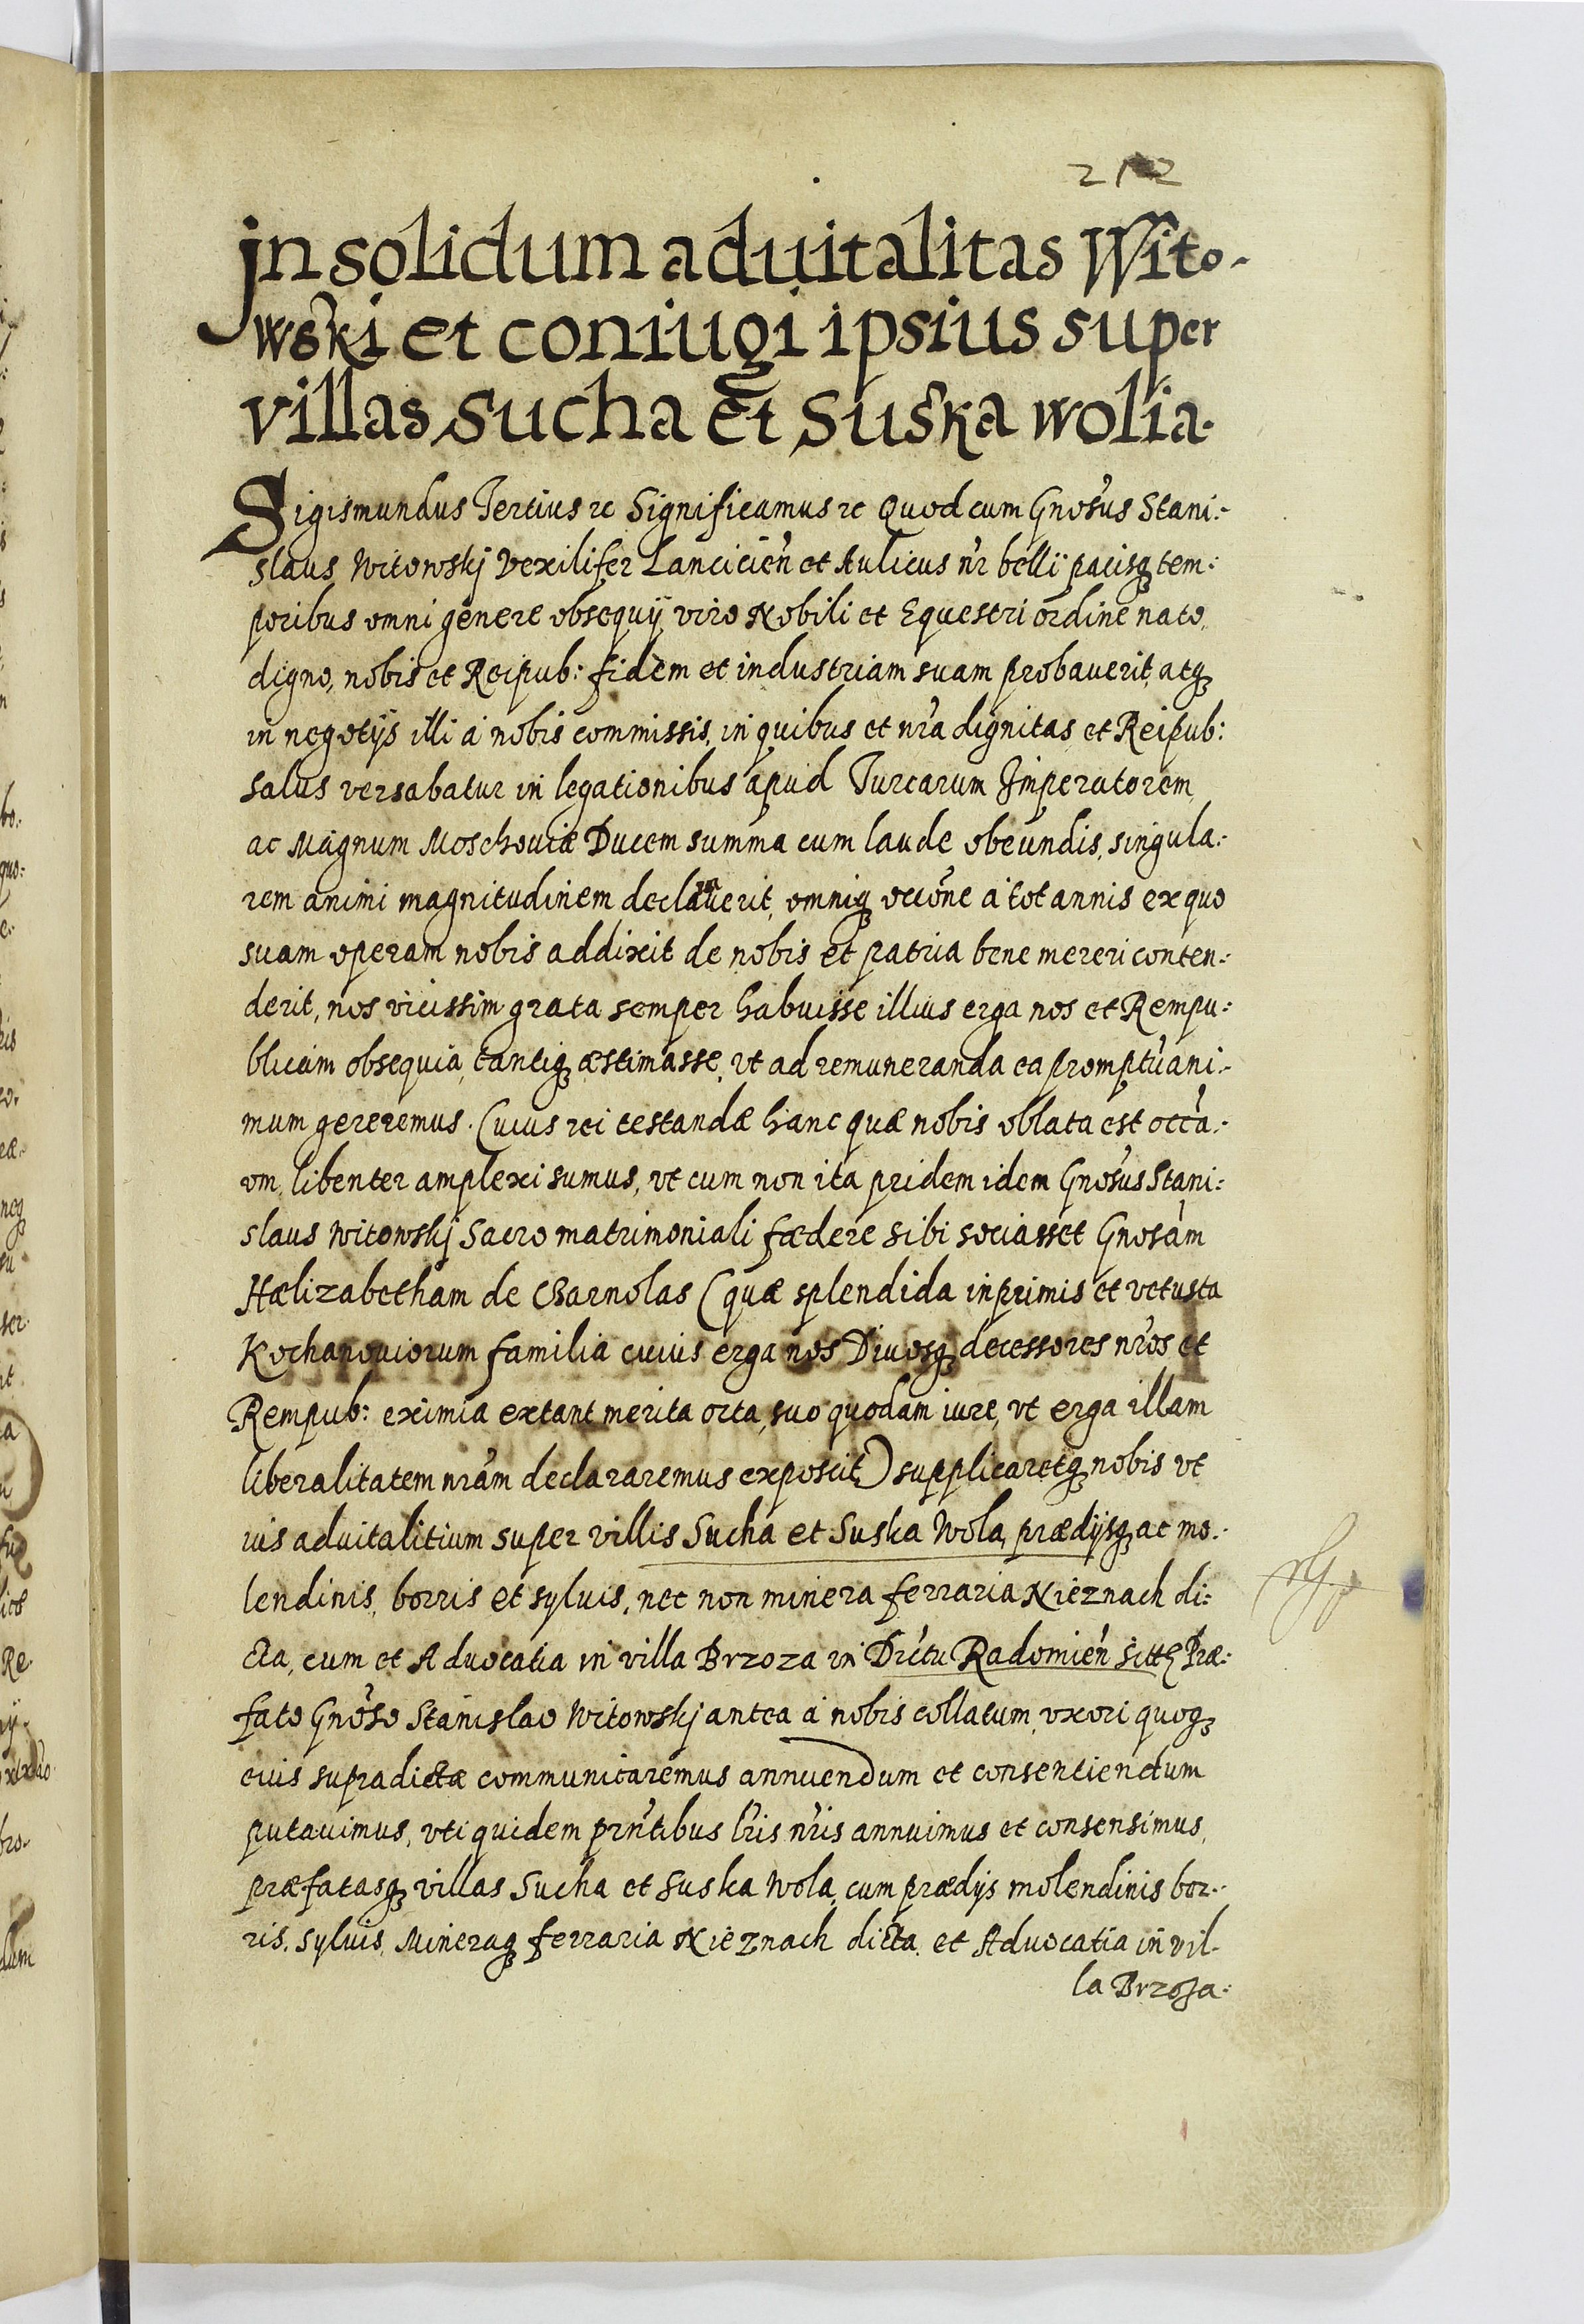 212
Jn solidum aduitalitas Wito-
wski et coniugi ipsius super
villas Sucha et Suska wolia.
Sigismundus Tertius rc Significamus rc Quod cum Gnosus Stani:
slaus Witowskj Vexilifer Lancicien et Aulicus nr belli pacisq tem:
poribus omni genere obsequij viro Nobili et Equestri ordine nato
digno, nobis et Reipub: fidem et industriam suam probauerit, atq
in negotijs illi a nobis commissis, in quibus et nra dignitas et Reipub:
salus versabatur in legationibus apud Turcarum Imperatorem
ac Magnum Moschouiæ Ducem summa cum laude obeundis, singula:
rem animi magnitudinem declarauerit, omniq occone a tot annis ex quo
suam operam nobis addixit de nobis et patria bene mereri conten:
derit, nos vicissim grata semper habuisse illius erga nos et Rempu:
blicam obsequia, tantiq æstimasse, vt ad remuneranda ea promptu ani:
mum gereremus. Cuius rei testandæ hanc quæ nobis oblata est occa:
om, libenter amplexi sumus, vt cum non ita pridem idem Gnosus Stani:
slaus Witowskj Sacro matrimoniali fœdere sibi sociasset Gnosam
Hælizabetham de Charnolas (quæ splendida inprimis et vetusta
Kochanouiorum familia cuius erga nos Diuosq decessores nros et
Rempub: eximia extant merita orta, suo quodam iure, vt erga illam
liberalitatem nram declararemus exposcit) supplicaretq nobis vt
ius aduitalitium super villis Sucha et Suska Wola, prædijsq ac mo:
lendinis, borris et syluis, nec non minera ferraria Nieznach di:
cta, cum et Aduocatia in villa Brzoza in Drictu Radomien sittq Præ:
fato Gnoso Stanislao Witowskj antea a nobis collatum, vxori quoq
eius supradictæ communicaremus annuendum et consentiendum
putauimus, vti quidem prntibus lris nris annuimus et consensimus,
præfatasq villas Sucha et Suska Wola, cum prædijs molendinis bor:
ris, syluis, Mineraq ferraria Nieznach dicta et Aduocatia in vil-
la Brzoza: